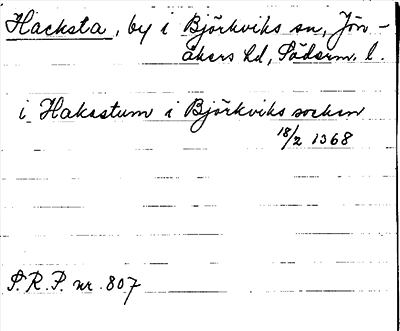 Hacksta, by i Björkviks sn, Jön-
åkers hd, Söderm. l.
i Hakastum i Björkviks socken
18/2 1368
S.R.P. nr. 807